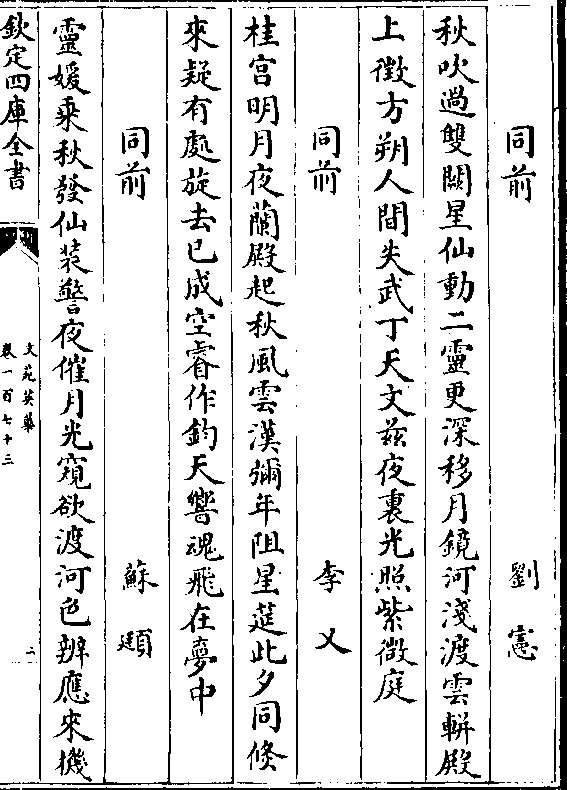 同前 劉憲
秋吹過雙闕星仙動二靈更深移月鏡河淺渡雲軿殿
上徴方朔人間失武丁天文茲夜裏光照紫微庭
同前 李乂
桂宫明月夜蘭殿起秋風雲漢彌年阻星筵此夕同倐
來疑有處旋去已成空睿作鈞天響魂飛在夢中
同前 蘇頲
靈媛乗秋發仙装警夜催月光窺欲渡河色辨應來機
欽定四庫全書
文苑英華
卷一百七十三
二